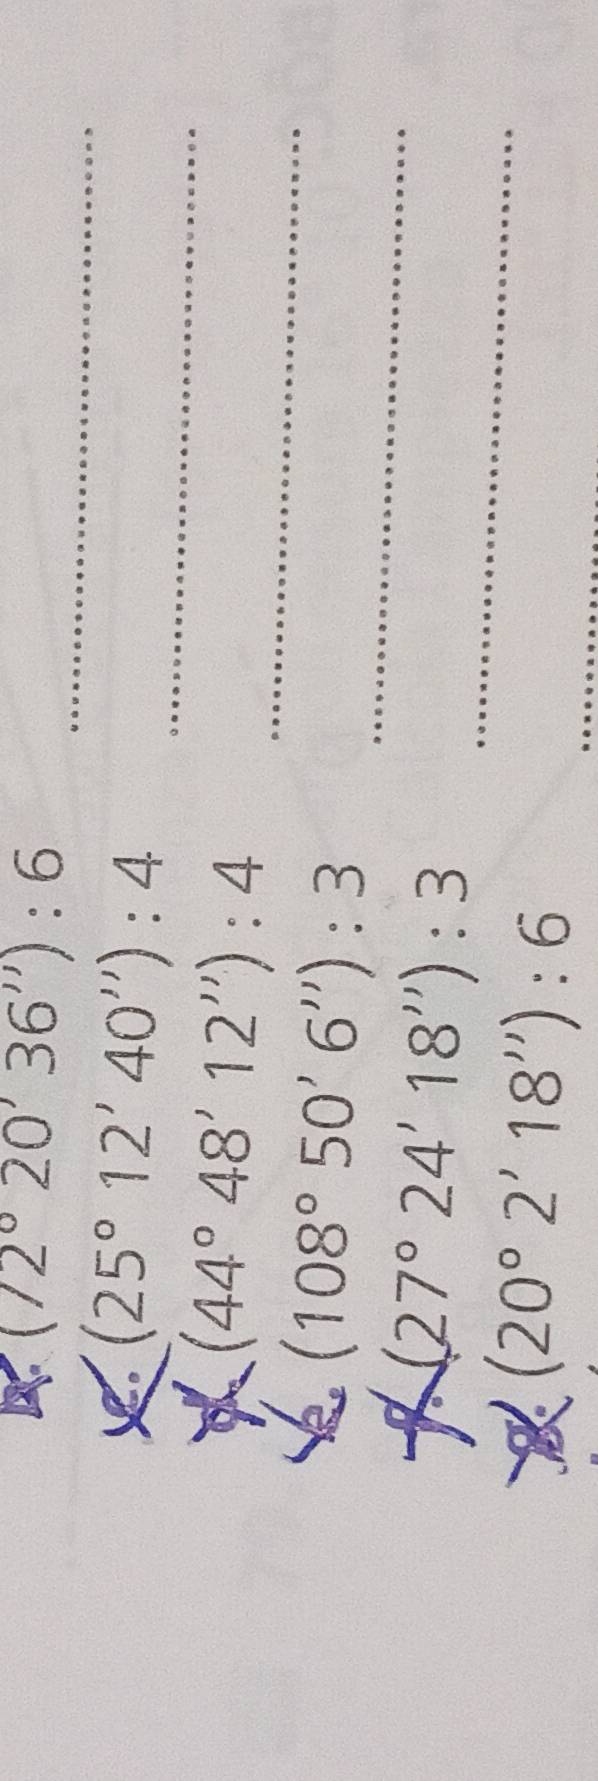 (72° 20′ 36″) : 6
c. (25° 12′ 40″) : 4
d. (44° 48′ 12″) : 4
e. (108° 50′ 6″) : 3
f. (27° 24′ 18″) : 3
g. (20° 2′ 18″) : 6